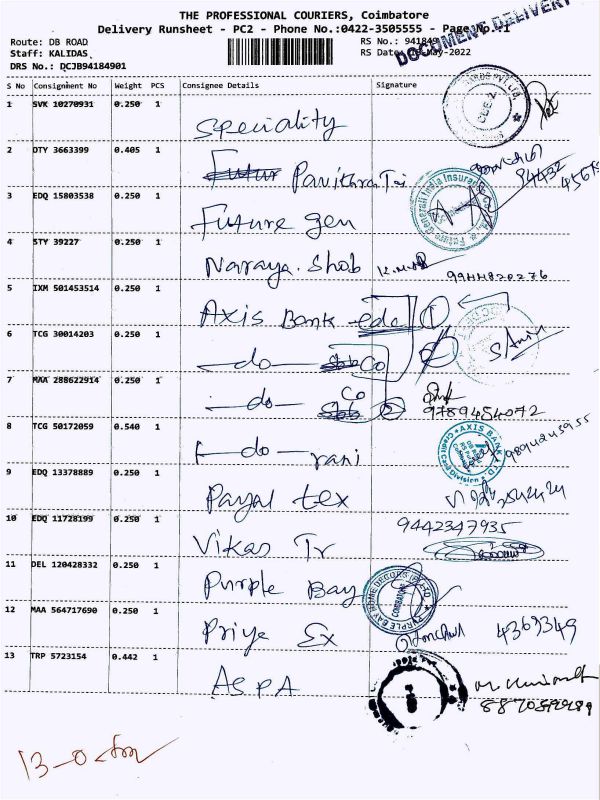 THE PROFESSIONAL COURIERS, Coimbatore
Delivery Runsheet - PC2 - Phone No.:0422-3505555 - Page No.:1
DOCUMENT DELIVERY
Route: DB ROAD
Staff: KALIDAS
DRS No.: DCJB94184901
RS No.: 941849
RS Date: -May-2022
S No Consignment No Weight PCS Consignee Details Signature
1 SVK 10270931 0.250 1 Speciality
2 DTY 3663399 0.405 1 Futur Pavithra 94432
3 EDQ 15803538 0.250 1 Future gen
4 STY 39227 0.250 1 Naraya. Shob 9944820276
5 IXM 501453514 0.250 1 Axis Bank edc 1
6 TCG 30014203 0.250 1 —do— Co
7 MAA 288622914 0.250 1 —do— Co 9789454072
8 TCG 50172059 0.540 1 —do— rani
AXIS BANK LTD
9 EDQ 13378889 0.250 1 Payal tex
10 EDQ 11728199 0.250 1 Vikas Tr 9442347935
11 DEL 120428332 0.250 1 Purple Bay
PURPLE BAY HOME DECORS (P) LTD
COIMBATORE
12 MAA 564717690 0.250 1 Priya Ex 4369349
13 TRP 5723154 0.442 1 ASPA